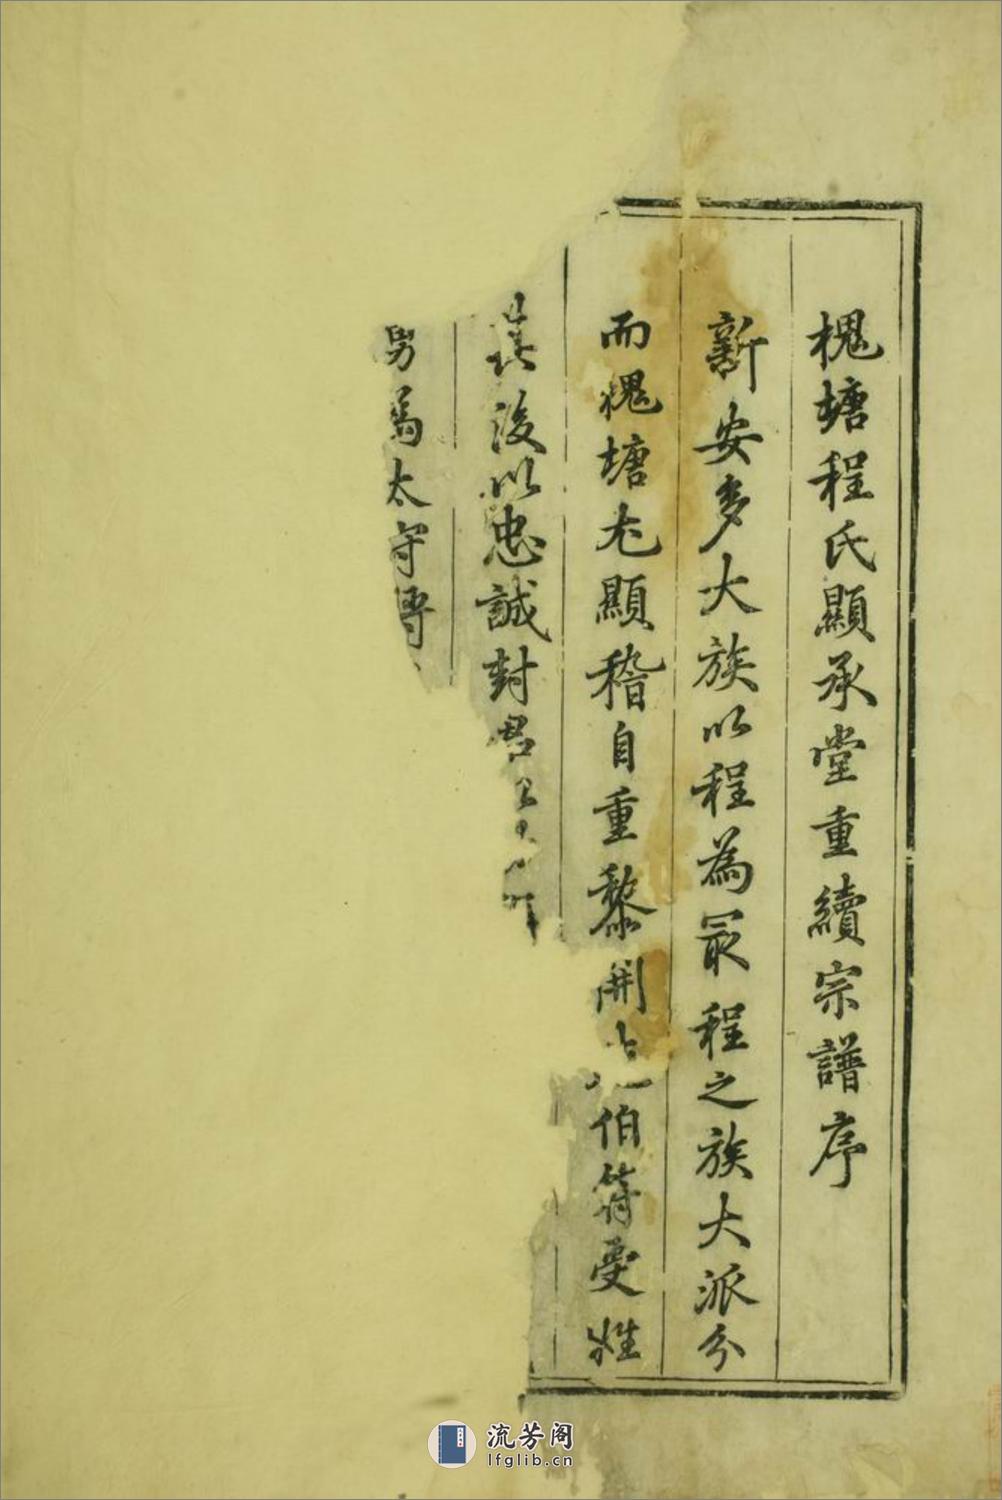 槐塘程氏顯承堂重續宗譜序
新安多大族以程為冣程之族大派分
而槐塘尢顯稽自重黎開伯符受姓
其後以忠誠封君
男為太守博
流芳阁
lfglib.cn